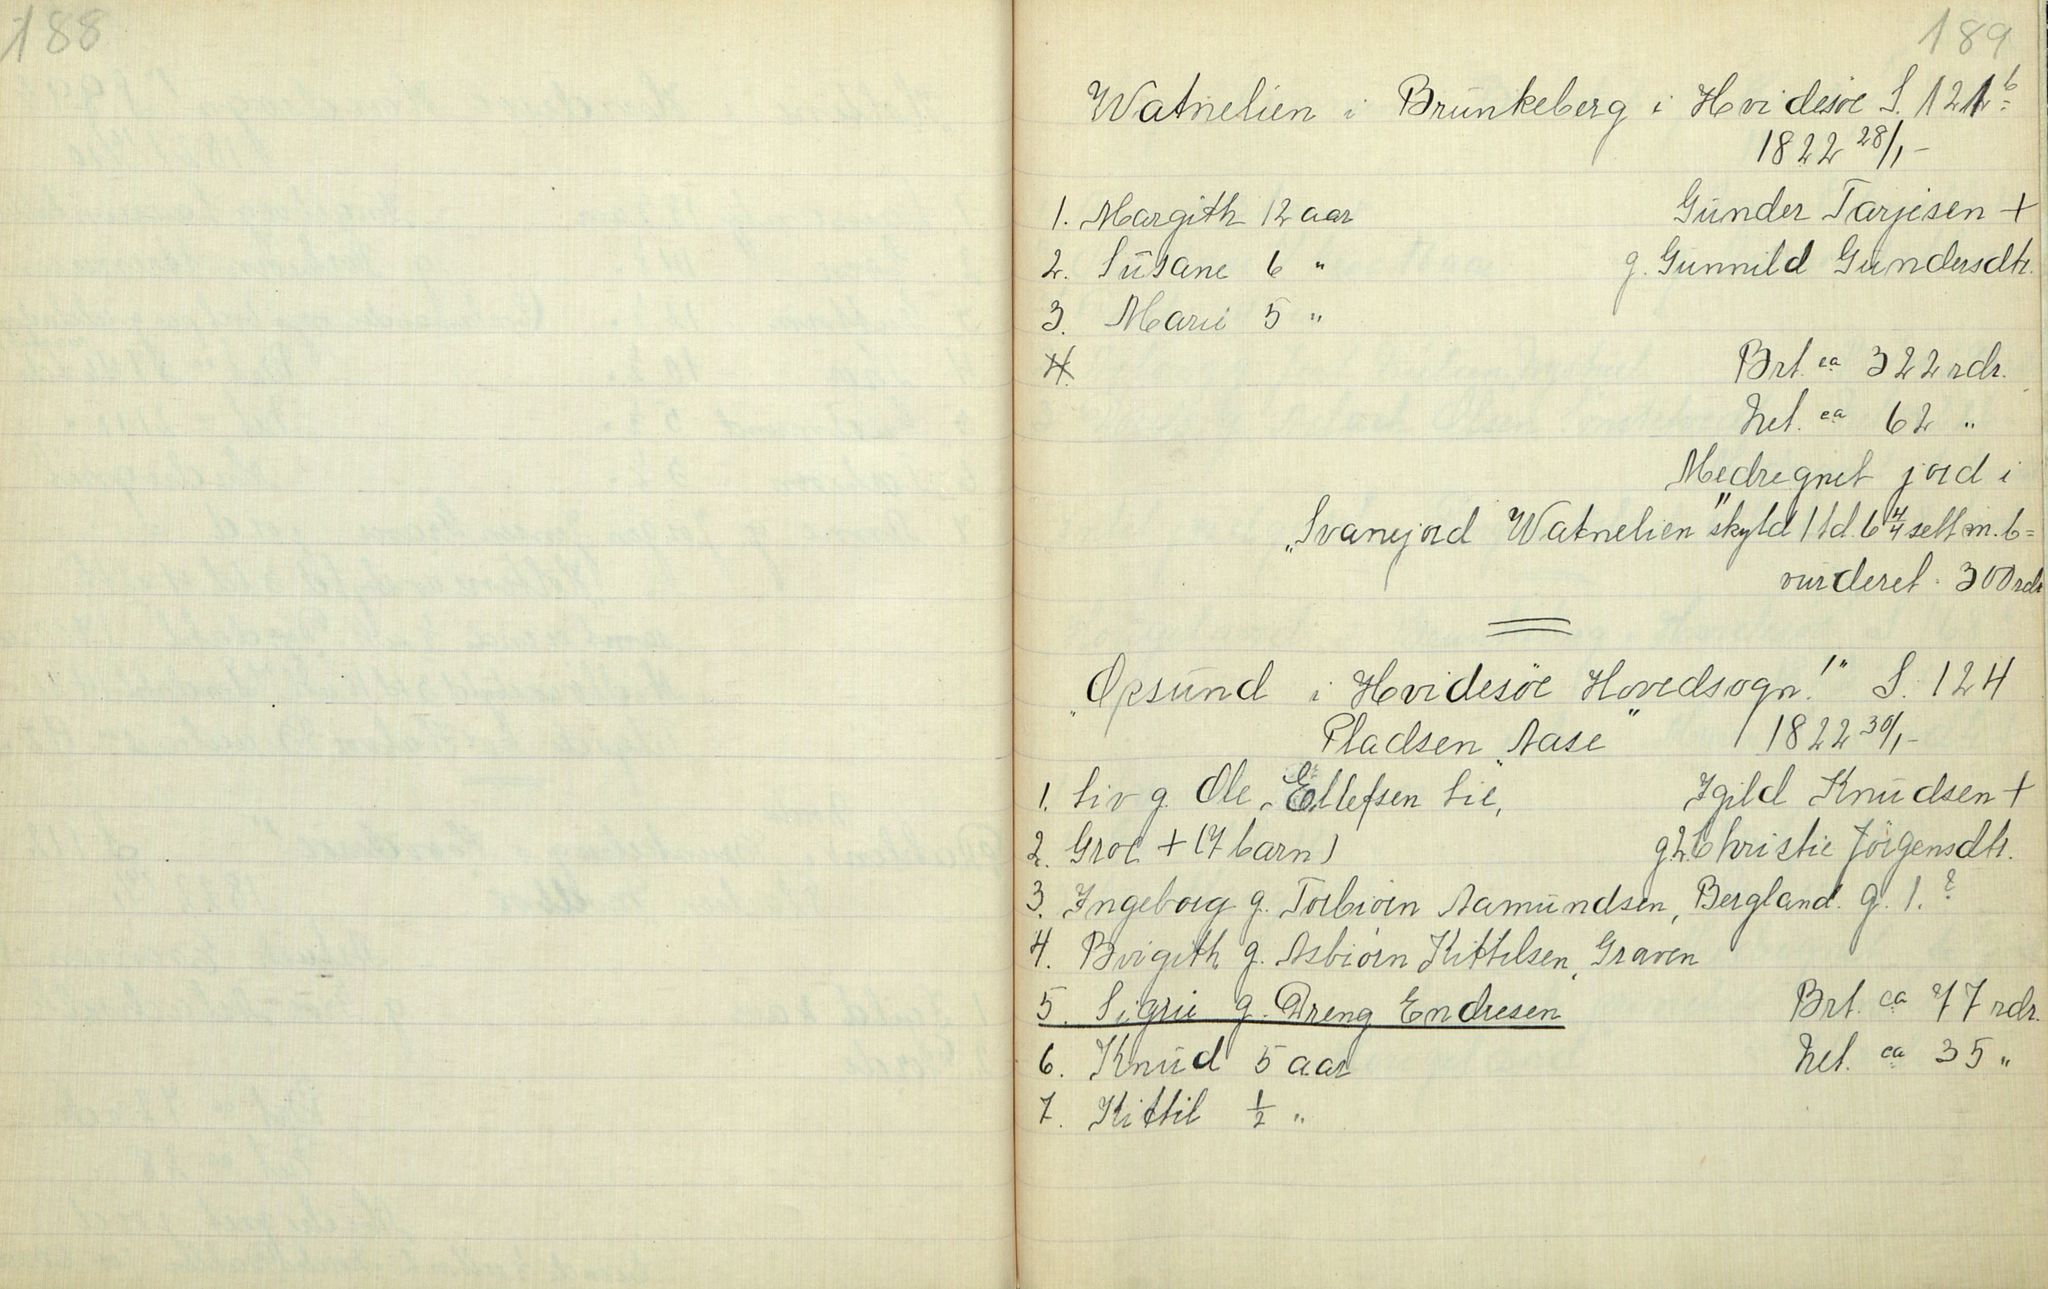 188
189
Watnelien i Brunkeberg i Hvidesøe S. 121 b=
1822 28/1-
1. Margith 12 aar Gunder Tarjesen +
2. Susane 6 " g. Gunnild Gundersdtr.
3. Marie 5 "
4. Brt. ca 322 rdr.
Net. ca 62 "
Medregnet jord i
"Svanejord Watnelien" skyld 1 td. 6 4/4 sett m. b=
vurderet 300 rdr
"Opsund i Hvidesöe Hovedsogn!" S. 124
Pladsen "Aase" 1822 30/1-
1. Liv g. Ole Ellefsen Lie, Igild Knudsen +
2. Groe + (7 barn) g2. Christie Jörgensdtr.
3. Ingeborg g. Torbiörn Aamundsen, Bergland. g. 1. ?
4. Birgith g. Asbiörn Kittilsen, Graven
5. Sigrie g. Dreng Endresen Brt. ca 77 rdr.
6. Knud 5 aar Net. ca 35 "
7. Kittil 1/2 "